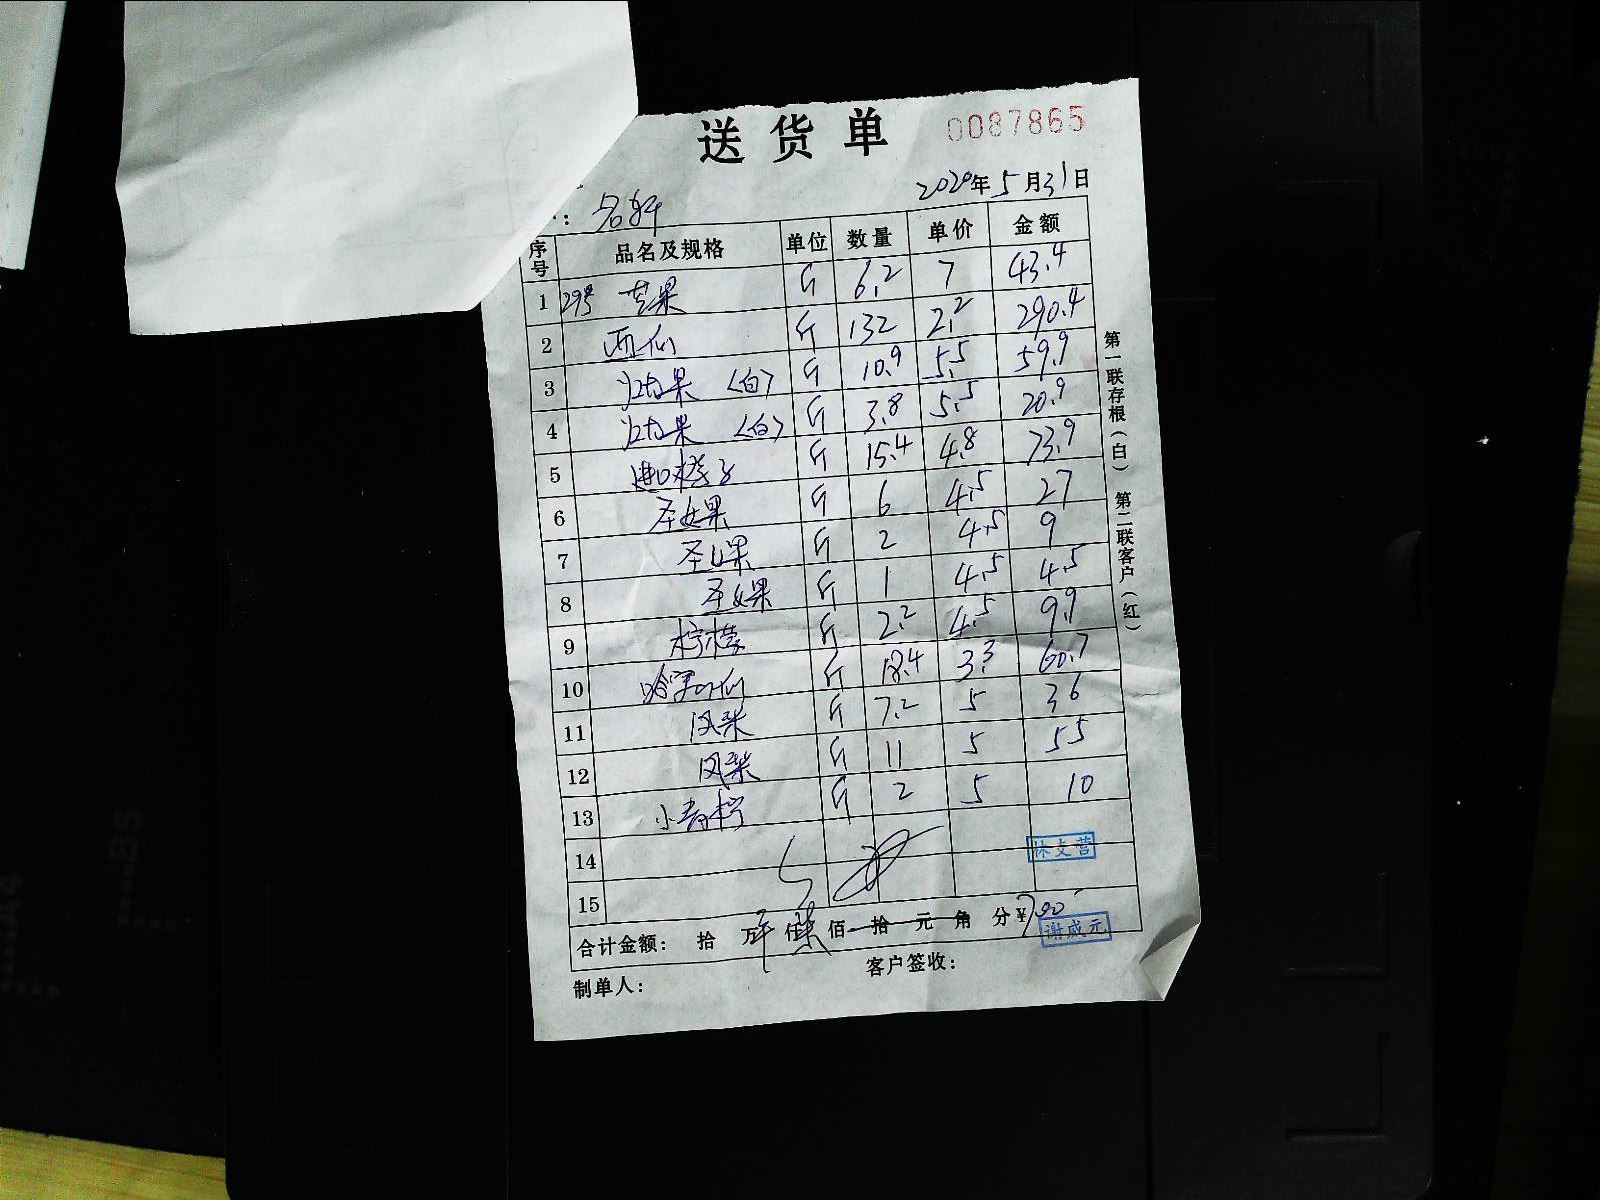 送货单 0087865
2020年5月31日
: 名轩
序号 品名及规格 单位 数量 单价 金额
1 29号 芒果 斤 6.2 7 43.4
2 西瓜 斤 132 2.2 290.4
3 火龙果 (白) 斤 10.9 5.5 59.9
4 火龙果 (白) 斤 3.8 5.5 20.9
5 进口橙子 斤 15.4 4.8 73.9
6 圣女果 斤 6 4.5 27
7 圣女果 斤 2 4.5 9
8 圣女果 斤 1 4.5 4.5
9 柠檬 斤 2.2 4.5 9.9
10 哈密瓜 斤 18.4 3.3 60.7
11 凤梨 斤 7.2 5 36
12 凤梨 斤 11 5 55
13 小青柠 斤 2 5 10
14
15
合计金额: 拾 万 仟 柒 佰 拾 元 角 分 ¥700
谢成元
制单人: 客户签收:
第一联存根(白) 第二联客户(红)
B5
A4